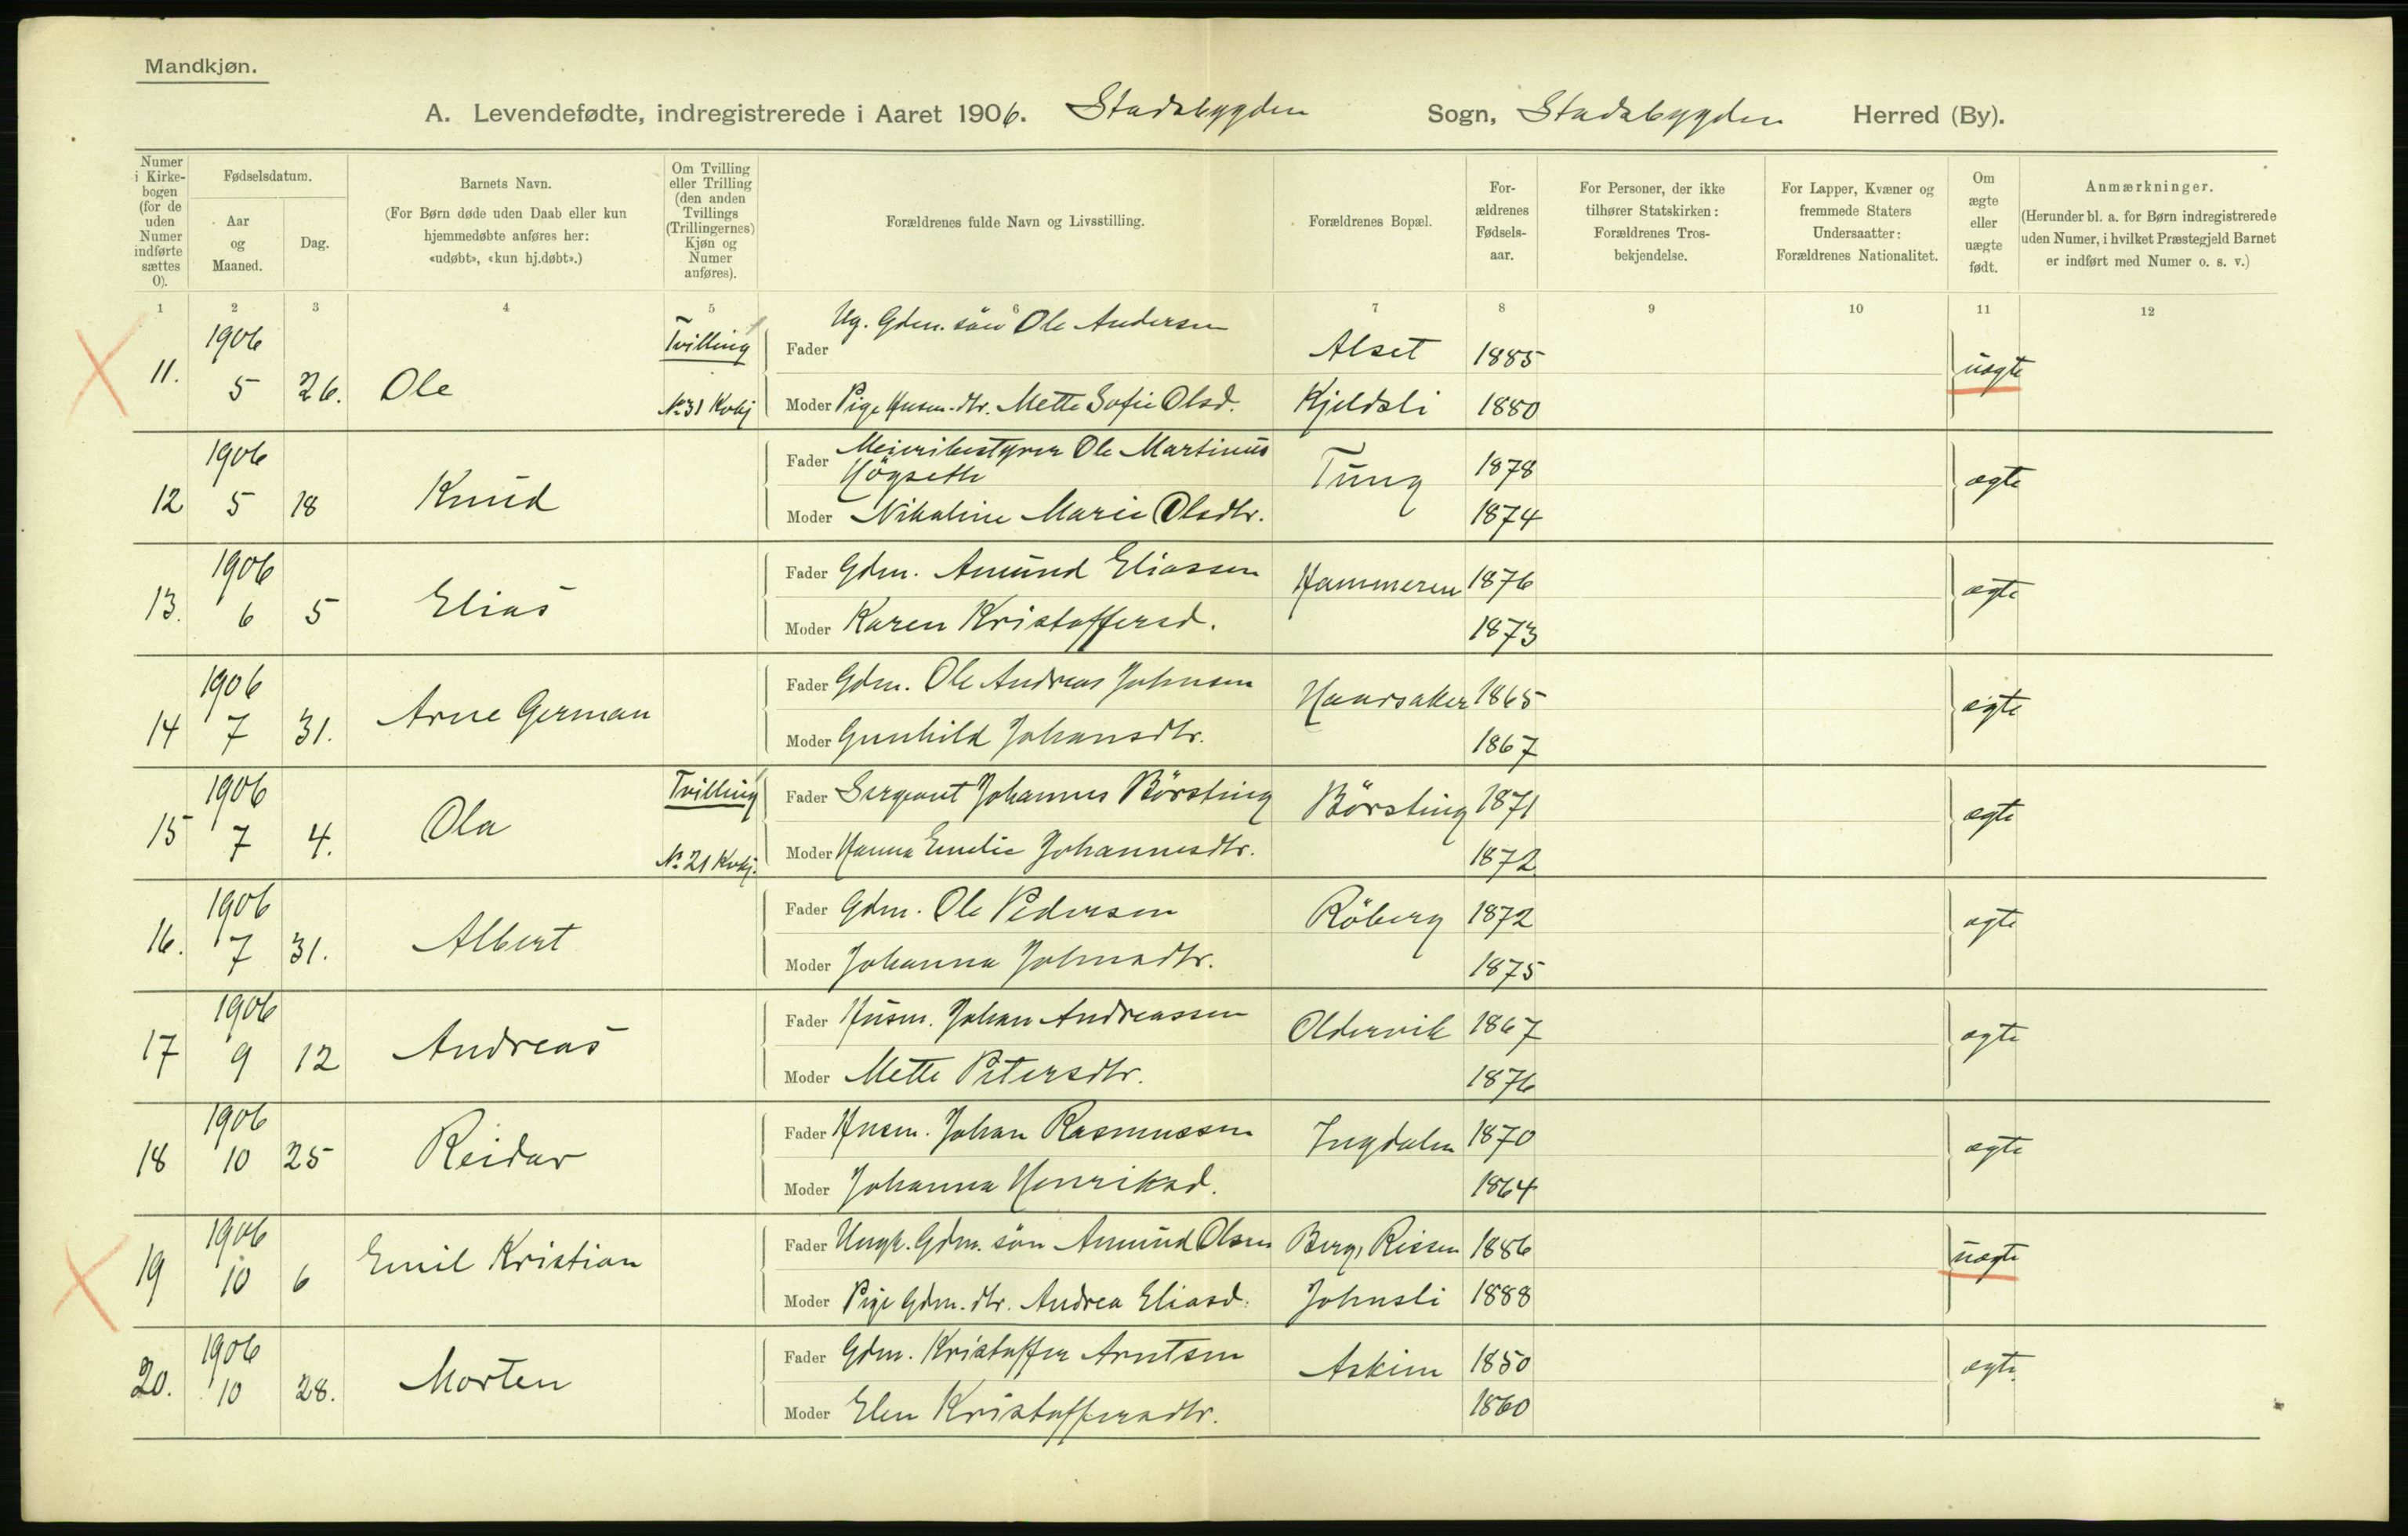 Mandkjøn.
A. Levendefødte, indregistrerede i Aaret 1906. Stadsbygden Sogn, Stadsbygden Herred (By).
Numer i Kirkebogen (for de uden Numer indførte sættes 0).
Fødselsdatum.
Aar og Maaned.
Dag.
Barnets Navn.
(For Børn døde uden Daab eller kun hjemmedøbte anføres her: «udøbt», «kun hj.døbt».)
Om Tvilling eller Trilling (den anden Tvillings (Trillingernes) Kjøn og Numer anføres).
Forældrenes fulde Navn og Livsstilling.
Forældrenes Bopæl.
Forældrenes Fødselsaar.
For Personer, der ikke tilhører Statskirken: Forældrenes Trosbekjendelse.
For Lapper, Kvæner og fremmede Staters Undersaatter: Forældrenes Nationalitet.
Om ægte eller uægte født.
Anmærkninger.
(Herunder bl. a. for Børn indregistrerede uden Numer, i hvilket Præstegjeld Barnet er indført med Numer o. s. v.)
1 2 3 4 5 6 7 8 9 10 11 12
11. 1906 5 26. Ole Tvilling No 31 Kvkj
Fader Ug. Gdm. sön Ole Andersen Alset 1885 uægte
Moder Pige Husm. dtr. Mette Sofie Olsd. Kjeldsli 1880
12 1906 5 18 Knud
Fader Meieribestyrer Ole Martinus Högseth Tung 1878 ægte
Moder Nikoline Marie Olsdtr. 1874
13. 1906 6 5 Elias
Fader Gdm. Amund Eliassen Hammeren 1876 ægte
Moder Karen Kristoffersd. 1873
14 1906 7 31. Arne German
Fader Gdm. Ole Andreas Johnsen Haarsaker 1865 ægte
Moder Gunhild Johansdtr. 1867
15 1906 7 4. Ola Tvilling No 21 Kvkj.
Fader Sergeant Johannes Börsting Börsting 1871 ægte
Moder Hanna Emelie Johannesdtr. 1872
16. 1906 7 31. Albert
Fader Gdm. Ole Pedersen Röberg 1872 ægte
Moder Johanna Johnsdtr. 1875
17 1906 9 12 Andreas
Fader Husm. Johan Andreassen Oldervik 1867 ægte
Moder Mette Petersdtr. 1876
18 1906 10 25 Reidar
Fader Husm. Johan Rasmussen Ingdalen 1870 ægte
Moder Johanna Henriksd. 1864
19 1906 10 6 Emil Kristian
Fader Ungk. Gdm. sön Amund Olsen Berg, Rissen 1886 uægte
Moder Pige Gdm. dtr. Andrea Eliasd. Johnsli 1888
20. 1906 10 28. Morten
Fader Gdm. Kristoffer Arntsen Askim 1850 ægte
Moder Elen Kristoffersdtr. 1860